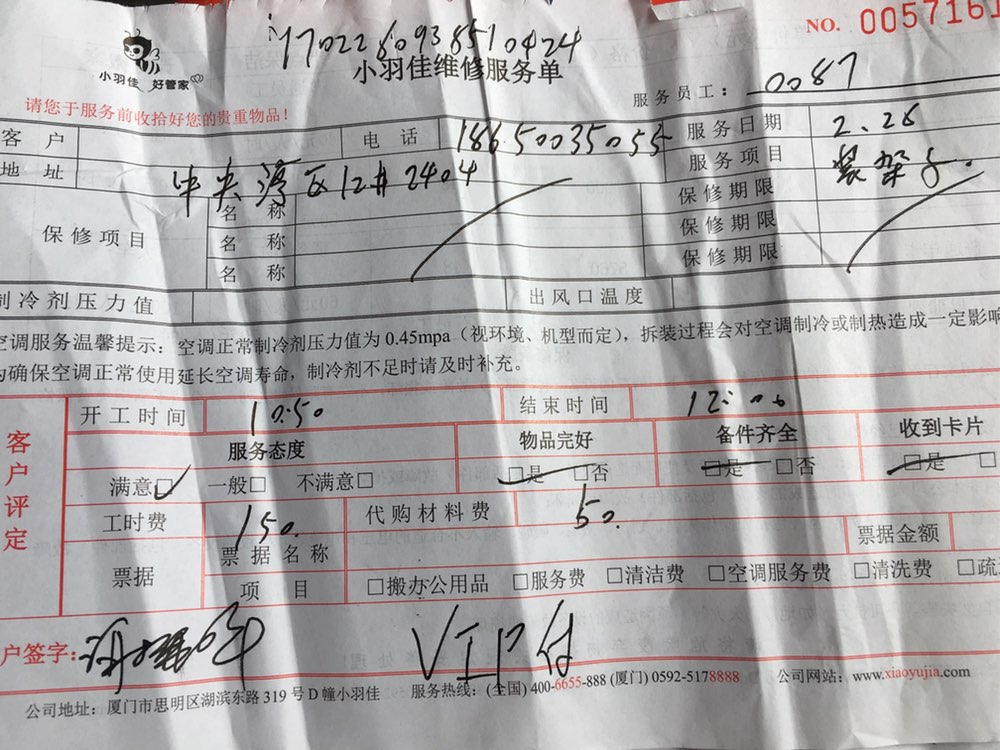 NO. 0057161
1702280938510424
小羽佳 好管家
小羽佳维修服务单
服务员工: 0087
请您于服务前收拾好您的贵重物品!
客 户 电 话 18650035055 服务日期 2.28
地 址 中央湾区12# 2404 服务项目 装架子.
保修项目 名 称 保修期限
名 称 保修期限
名 称 保修期限
制冷剂压力值 出风口温度
空调服务温馨提示: 空调正常制冷剂压力值为 0.45mpa(视环境、机型而定), 拆装过程会对空调制冷或制热造成一定影响
为确保空调正常使用延长空调寿命, 制冷剂不足时请及时补充。
客户评定
开工时间 10:50 结束时间 12:00
服务态度 物品完好 备件齐全 收到卡片
满意□✓ 一般□ 不满意□ □是 □否 □是 □否 □是 □
工时费 150. 代购材料费 50.
票据 票据名称 票据金额
项 目 □搬办公用品 □服务费 □清洁费 □空调服务费 □清洗费 □疏
户签字: VIP付
公司地址: 厦门市思明区湖滨东路 319 号 D 幢小羽佳 服务热线: (全国) 400-6655-888 (厦门) 0592-5178888 公司网站: www.xiaoyujia.com